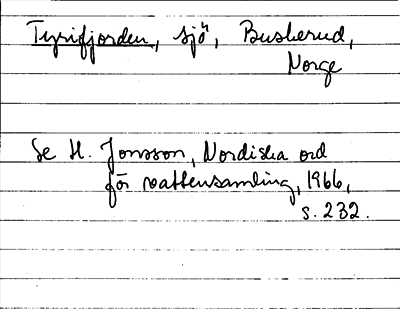 Tyrifjorden, sjö, Buskerud,
Norge
Se H. Jonsson, Nordiska ord
för vattensamling, 1966,
s. 232.